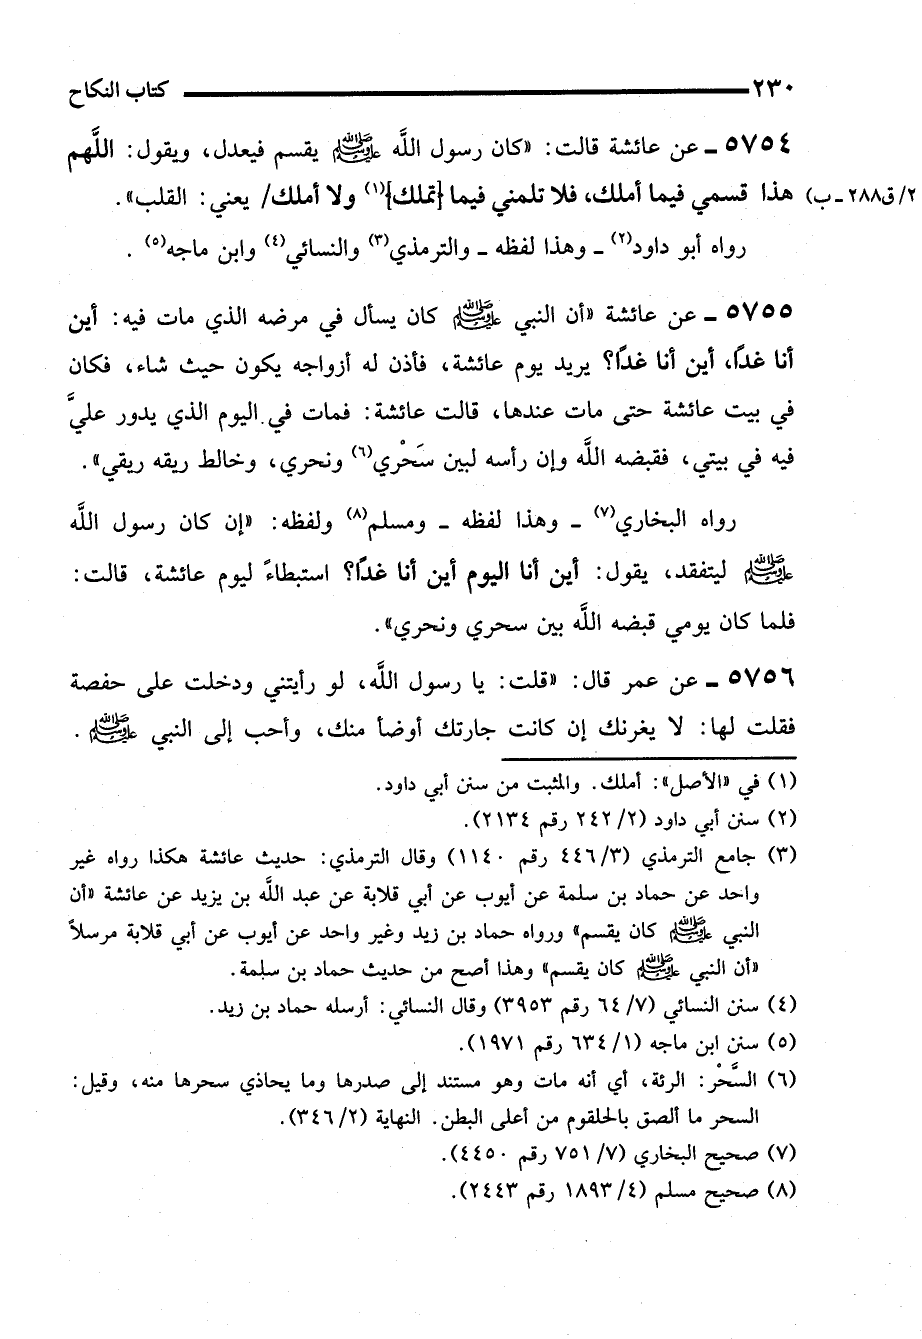 ٢٣٠ كتاب النكاح
٥٧٥٤ ـ عن عائشة قالت: «كان رسول اللَّه ﷺ يقسم فيعدل، ويقول: اللَّهم
هذا قسمي فيما أملك، فلا تلمني فيما {تملك}(١) ولا أملك/ يعني: القلب». ٢/ ق٢٨٨ ـ ب)
رواه أبو داود(٢) ـ وهذا لفظه ـ والترمذي(٣) والنسائي(٤) وابن ماجه(٥) .
٥٧٥٥ ـ عن عائشة «أن النبي ﷺ كان يسأل في مرضه الذي مات فيه: أين
أنا غدًا، أين أنا غدًا؟ يريد يوم عائشة، فأذن له أزواجه يكون حيث شاء، فكان
في بيت عائشة حتى مات عندها، قالت عائشة: فمات في اليوم الذي يدور عليَّ
فيه في بيتي، فقبضه اللَّه وإن رأسه لبين سَحْري(٦) ونحري، وخالط ريقه ريقي».
رواه البخاري(٧) ـ وهذا لفظه ـ ومسلم(٨) ولفظه: «إن كان رسول اللَّه
ﷺ ليتفقد، يقول: أين أنا اليوم أين أنا غدًا؟ استبطاءً ليوم عائشة، قالت:
فلما كان يومي قبضه اللَّه بين سحري ونحري».
٥٧٥٦ ـ عن عمر قال: «قلت: يا رسول اللَّه، لو رأيتني ودخلت على حفصة
فقلت لها: لا يغرنك إن كانت جارتك أوضأ منك، وأحب إلى النبي ﷺ .
(١) في «الأصل»: أملك. والمثبت من سنن أبي داود.
(٢) سنن أبي داود (٢/ ٢٤٢ رقم ٢١٣٤).
(٣) جامع الترمذي (٣/ ٤٤٦ رقم ١١٤٠) وقال الترمذي: حديث عائشة هكذا رواه غير
واحد عن حماد بن سلمة عن أيوب عن أبي قلابة عن عبد اللَّه بن يزيد عن عائشة «أن
النبي ﷺ كان يقسم» ورواه حماد بن زيد وغير واحد عن أيوب عن أبي قلابة مرسلاً
«أن النبي ﷺ كان يقسم» وهذا أصح من حديث حماد بن سلمة.
(٤) سنن النسائي (٧/ ٦٤ رقم ٣٩٥٣) وقال النسائي: أرسله حماد بن زيد.
(٥) سنن ابن ماجه (١/ ٦٣٤ رقم ١٩٧١).
(٦) السَّحْر: الرئة، أي أنه مات وهو مستند إلى صدرها وما يحاذي سحرها منه، وقيل:
السحر ما ألصق بالحلقوم من أعلى البطن. النهاية (٢/ ٣٤٦).
(٧) صحيح البخاري (٧/ ٧٥١ رقم ٤٤٥٠).
(٨) صحيح مسلم (٤/ ١٨٩٣ رقم ٢٤٤٣).